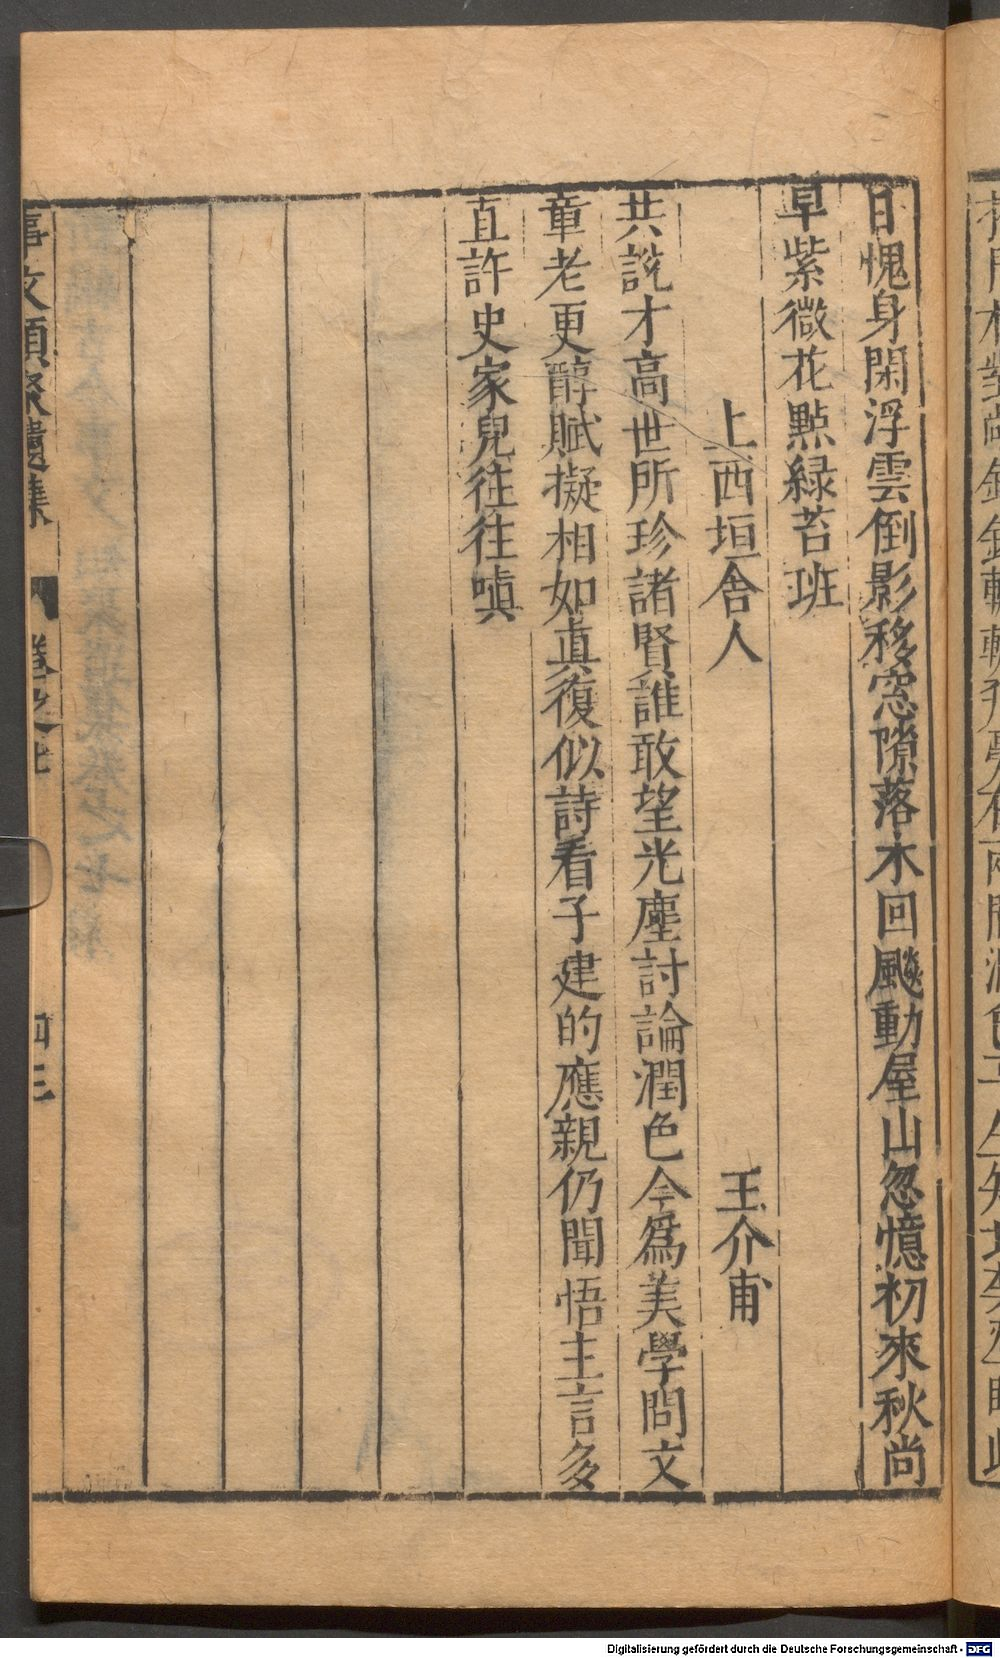 日愧身閑浮雲倒影移窓隙落木回飈動屋山忽憶初來秋尚
早紫微花㸃緑苔班
上西垣舎人 王介甫
共説才高世所珍諸賢誰敢望光塵討論潤色今爲美學問文
章老更醇賦擬相如真復似詩看子建的應親仍聞悟主言多
直許史家兒往往嗔
事文類聚遺集 卷之七 四三
Digitalisierung gefördert durch die Deutsche Forschungsgemeinschaft - DFG